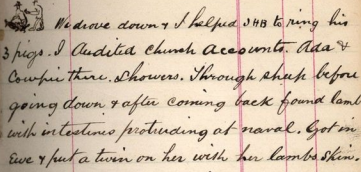 We drove down & I helped JHB to ring his
3 pigs. I Audited Church Accounts. Ada &
there. Showers. Through sheep before
going down & after coming back found lamb
with intestines protruding at naval. Got in
Ewe & put a twin on her with her lambs skin.